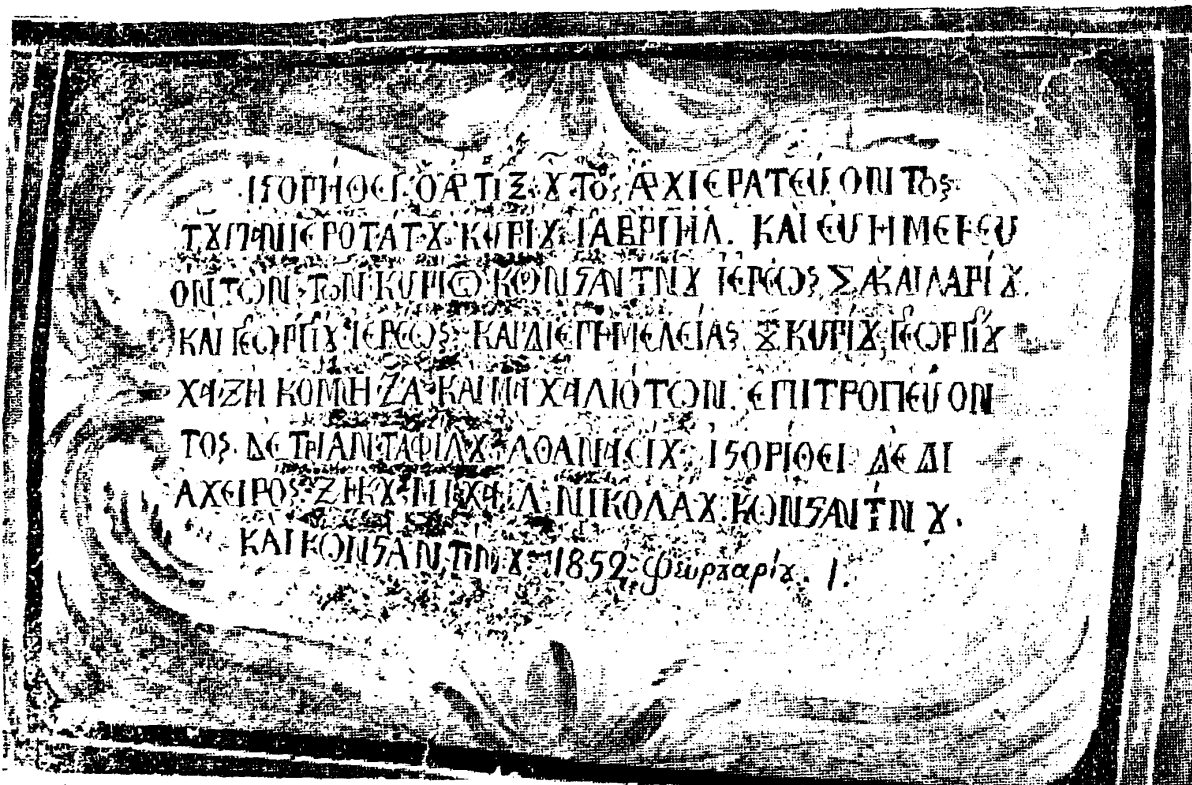 ΙϚΟΡΗΘΕΙ Ο ΑΡΤΙΞ Ȣ ΤΟς ΑΡΧΙΕΡΑΤΕΥΟΝΤος
ΤȢ ΠΑΝΙΕΡΟΤΑΤȢ ΚΥΡΙȢ ΓΑΒΡΙΗΛ. ΚΑΙ ΕΥΗΜΕΡΕΥ
ΟΝΤΩΝ ΤΩΝ ΚΥΡΙΩ ΚΩΝϚΑΝΤΙΝȢ ΙΕΡΕΩς ΣΑΚΑΙΛΑΡΙȢ.
ΚΑΙ ΓΕΩΡΓΙȢ ΙΕΡΕΩς ΚΑΙ ΔΙ ΕΠΗΜΕΛΕΙΑς ΚΥΡΙȢ ΓΕΩΡΓΙȢ
ΧΑΖΗ ΚΟΜΗΖΑ ΚΑΙ ΜΑΧΑΛΙΟΤΩΝ. ΕΠΙΤΡΟΠΕΥΟΝ
ΤΟς ΔΕ ΤΡΙΑΝΤΑΦΙΛȢ ΑΘΑΝΑCΙȢ ΙϚΟΡΙΘΕΙ ΔΕ ΔΙ
Α ΧΕΙΡΟς ΖΗΚȢ ΜΙΧΑΗΛ ΝΙΚΟΛΑȢ ΚΩΝϚΑΝΤΙΝȢ.
ΚΑΙ ΚΩΝϚΑΝΤΙΝȢ 1852 φευρȣαρίȣ. 1.